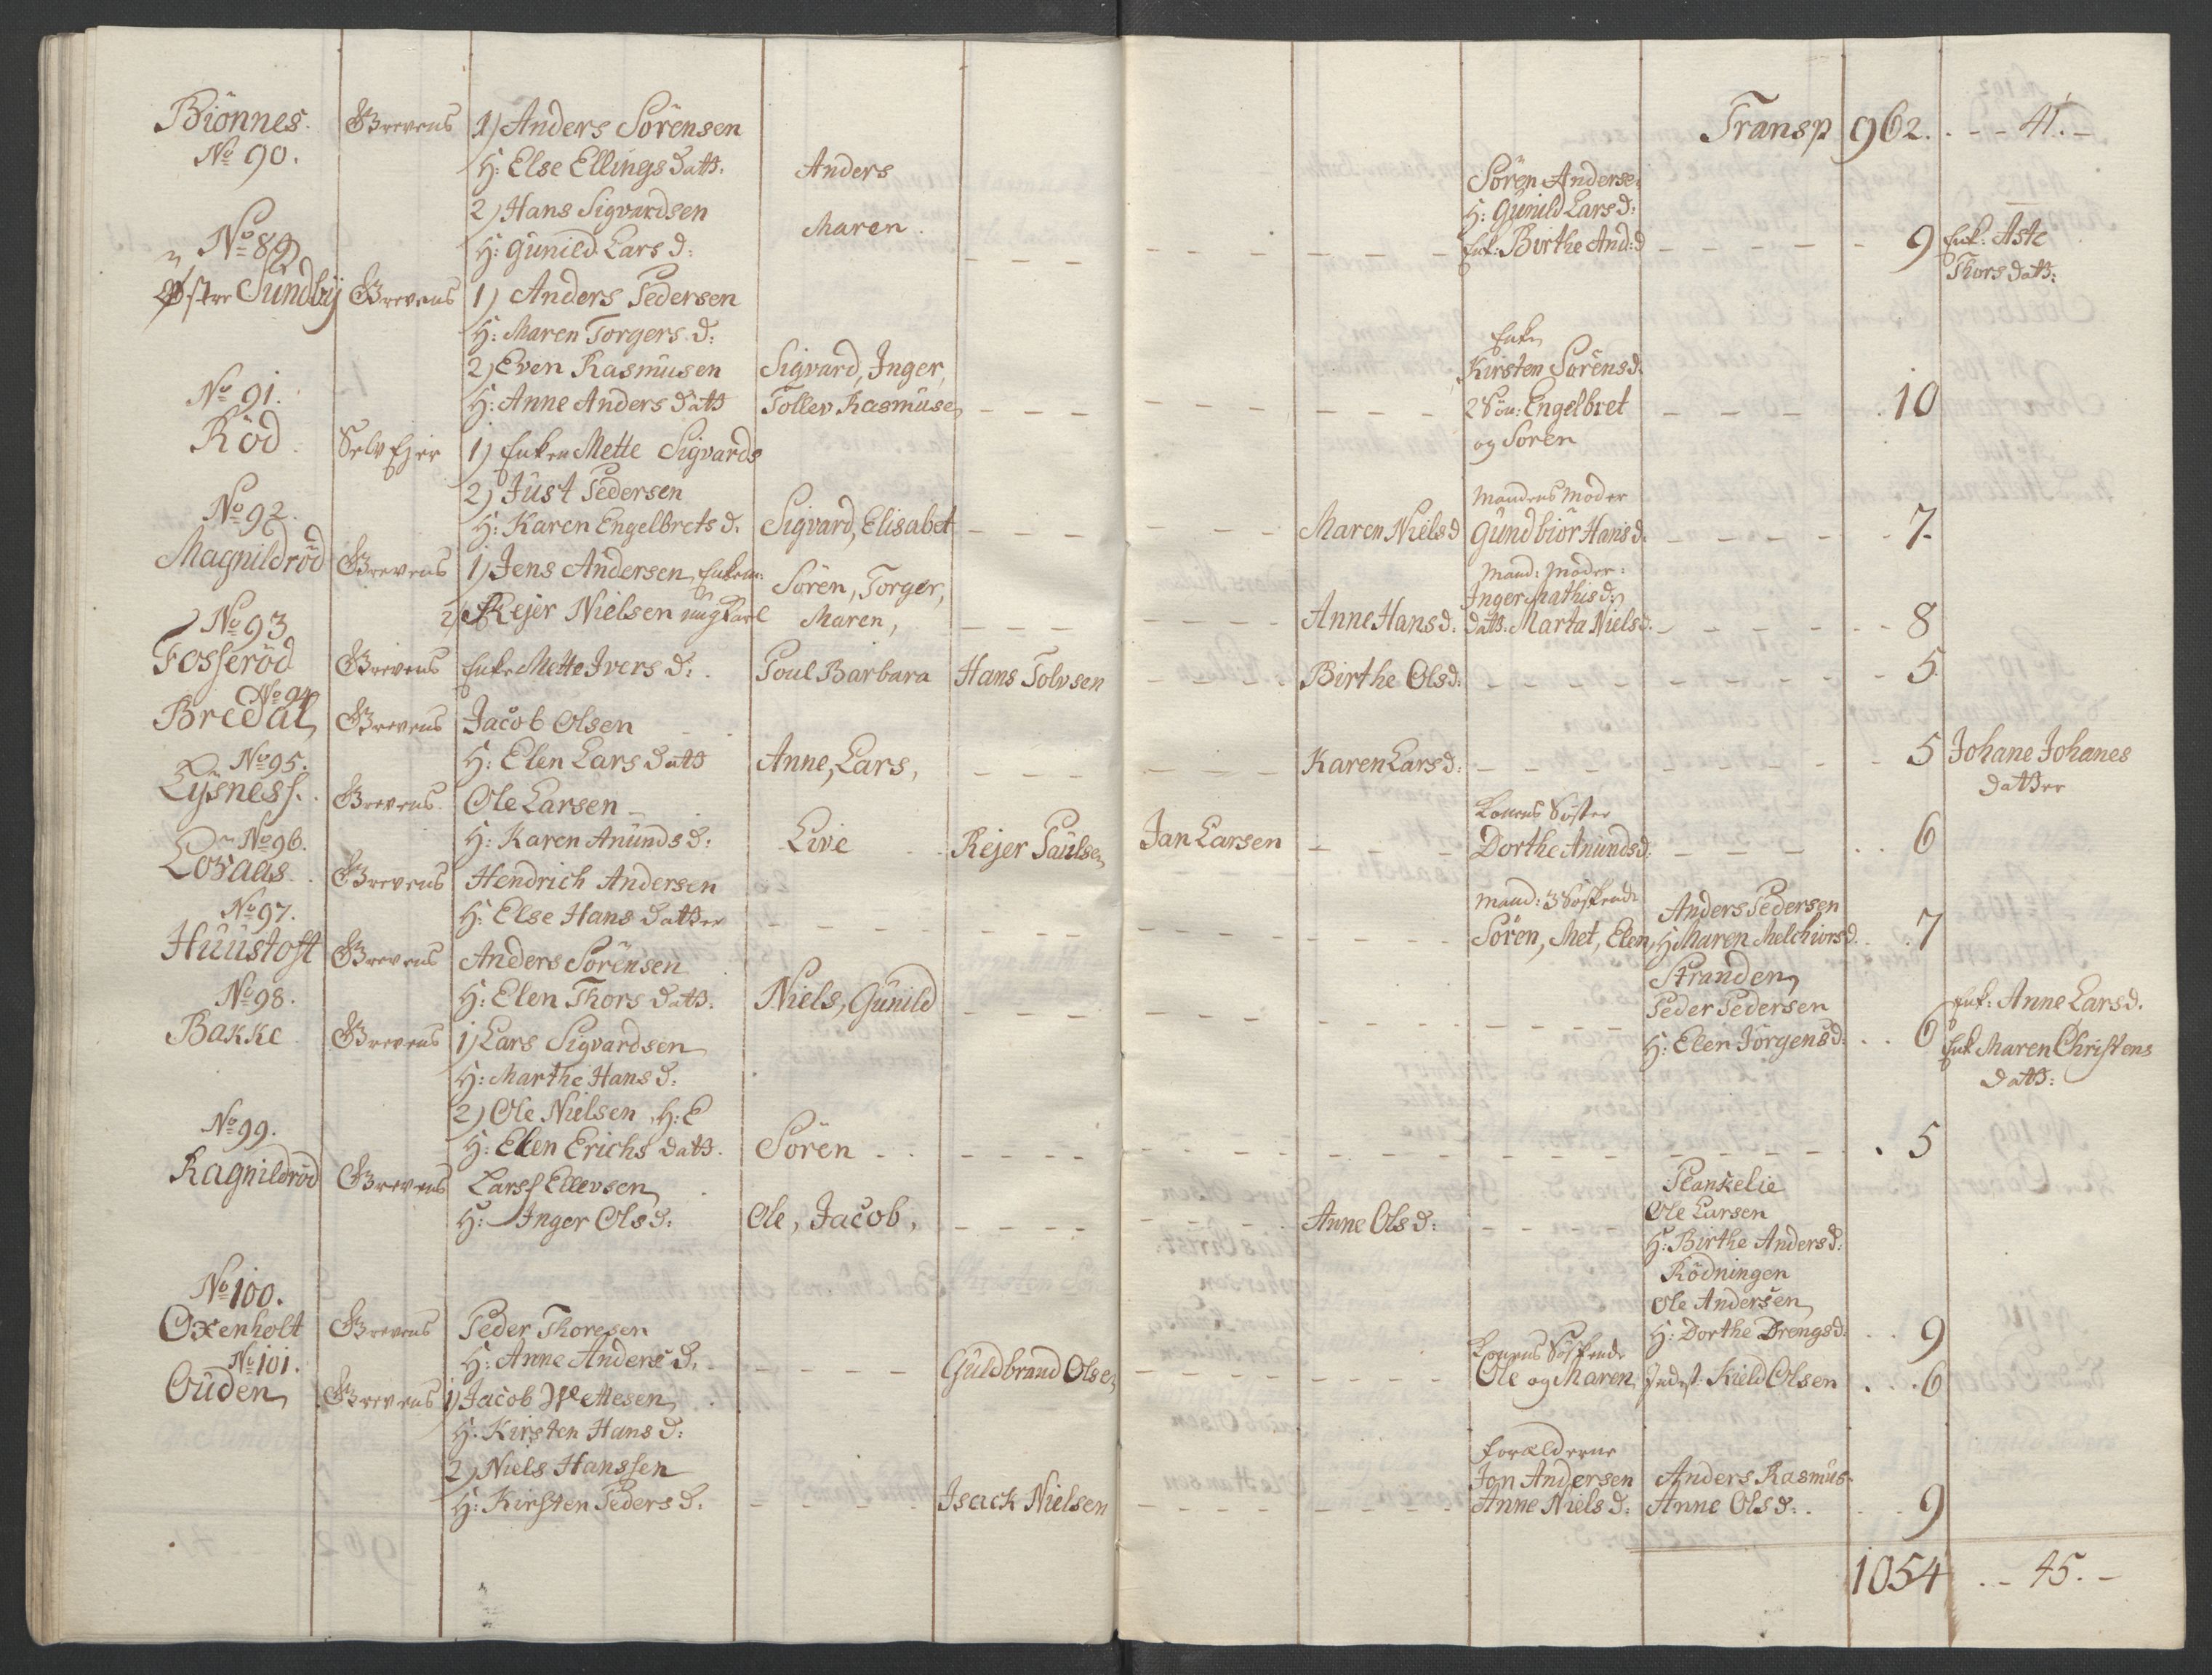 Transp 962. - - - 41. -
Biönnes. Grevens 1) Anders Sörensen
No 90. H: Else Ellings Datt. Anders Sören Andersen
2) Hans Sigvardsen H: Gunild Lars d:
No 89 H: Gunild Lars d: Maren. Enk: Birthe And: d 9 Enk: Aste
Østre Sundbÿ Grevens 1) Anders Pedersen Thors Datt:
H: Maren Torgers d: Enke
2) Even Rasmusen Sigvard, Inger, Kirsten Sörensd.
No 91. H: Anne Anders Datt Tollev Rasmusen 2 Sön: Engelbret 10
Röd. Selv Ejer 1) Enken Mette Sigvards og Sören
2) Just Pedersen Mandens Moder
No 92. H: Karen Engelbrets d. Sigvard, Elisabet Maren Niels d Gundbiör Hans d. 7.
Magnildröd Grevens 1) Jens Andersen, Enkem: Sören, Torger, Mand: Moder:
Inger Mathis d:
No 93 2) Rejer Nielsen ung Karl Maren, Anne Hans d. Datt. Marta Niels d. 8
Fosseröd Grevens Enke Mette Ivers d: Poul Barbara Hans Tolvsen Birthe Ols d: 5
No 94
Bredal Grevens Jacob Olsen
No 95. H: Elen Lars Datt Anne, Lars, Karen Lars d: 5 Johane Johanes
Lÿsness. Grevens. Ole Larsen Datter
Konens Söster
No 96. H: Karen Anunds d: Live Rejer Paulsen Jan Larsen Dorthe Anunds d. 6
Lovaas. Grevens Hendrich Andersen
Mand: 3 Söskende Anders Pedersen
No 97. H: Else Hans Datter Sören, Met, Elen, H: Maren Melchiors d. 7
Huustoft Grevens Anders Sörensen Stranden
No 98. H: Elen Thors Datt. Niels, Gunild Peder Pedersen Enk: Anne Lars d.
Bakke Grevens 1) Lars Sigvardsen H: Elen Jörgens d: 6 Enk Maren Christens
H: Marthe Hans d: Datt:
2) Ole Nielsen, H: E
No 99. H: Elen Erichs Datt. Sören 5
Ragnildröd Grevens Larss Ellevsen Plankelie
H: Inger Ols d: Ole, Jacob, Anne Ols d: Ole Larsen
H: Birthe Anders d:
Rödningen
No 100. Ole Andersen
Oxenholt Grevens Peder Thoresen H: Dorthe Drengs d: 9
Konens Söskende
No 101. H: Anne Anders d. Guldbrand Olsen Ole og Maren Indest: Kield Olsen 6
Ouden Grevens 1) Jacob Wettesen
H: Kirsten Hans d:
2) Niels Hanssen Forælderne
Jon Andersen Anders Rasmus
H: Kirsten Peders d. Isack Nielsen Anne Niels d: Anne Ols d: 9
1054 . - - 45. -